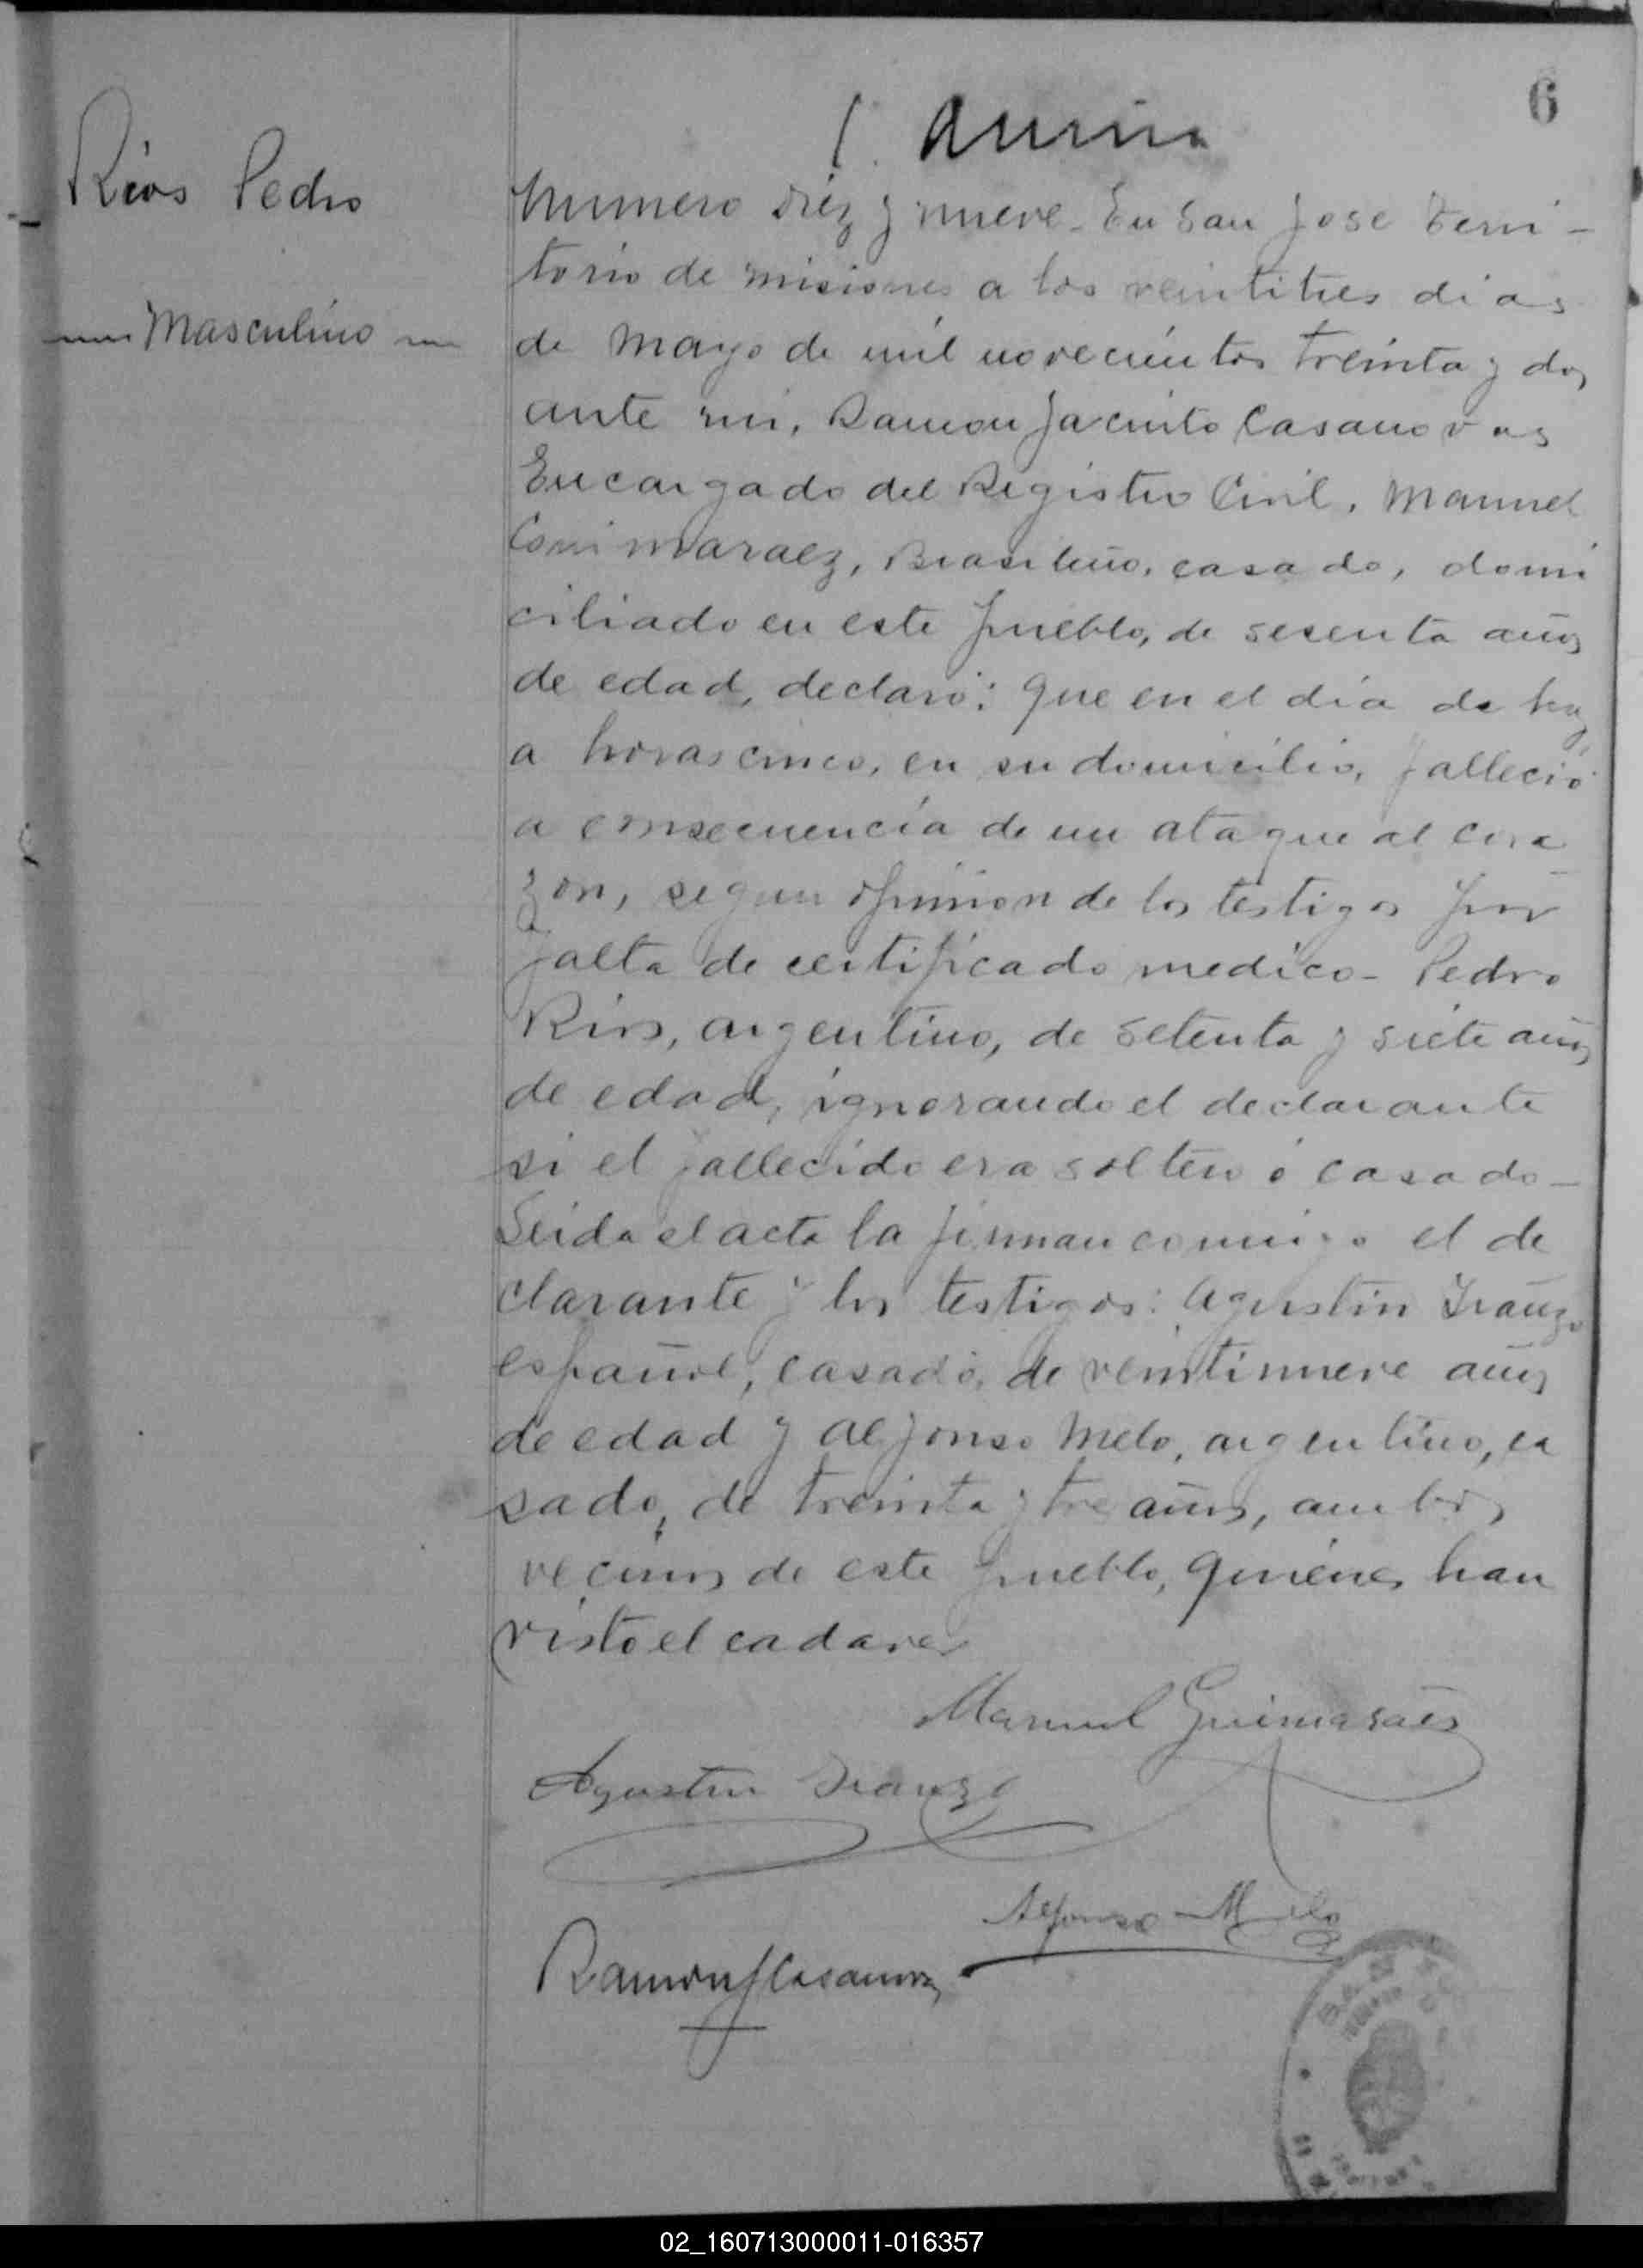 6
Rios Pedro
Masculino
Numero diez y nueve. En San Jose Terri-
torio de misiones a los veintitres dias
de Mayo de mil novecientos treinta y dos
ante mi, Ramon Jacinto Casanovas
Encargado del Registro Civil, Manuel
Guimaraez, Brasileño, casado, domi
ciliado en este pueblo, de sesenta años
de edad, declaró: Que en el día de hoy
a horas cinco, en su domicilio, falleció
a consecuencia de un ataque al cora
zon, segun opinion de los testigos por
falta de certificado medico - Pedro
Rios, argentino, de setenta y siete años
de edad, ignorando el declarante
si el fallecido era soltero ó casado -
Leida el acta la firman conmigo el de
clarante y los testigos: Agustin Iranzo
español, casado, de veintinueve años
de edad y Alfonso Melo, argentino, ca
sado, de treinta y tre años, ambos
vecinos de este pueblo, quienes han
visto el cadaver
Manuel Guimarães
Agustin Iranzo
Alfonso Melo
Ramon J Casanovas
02_160713000011-016357